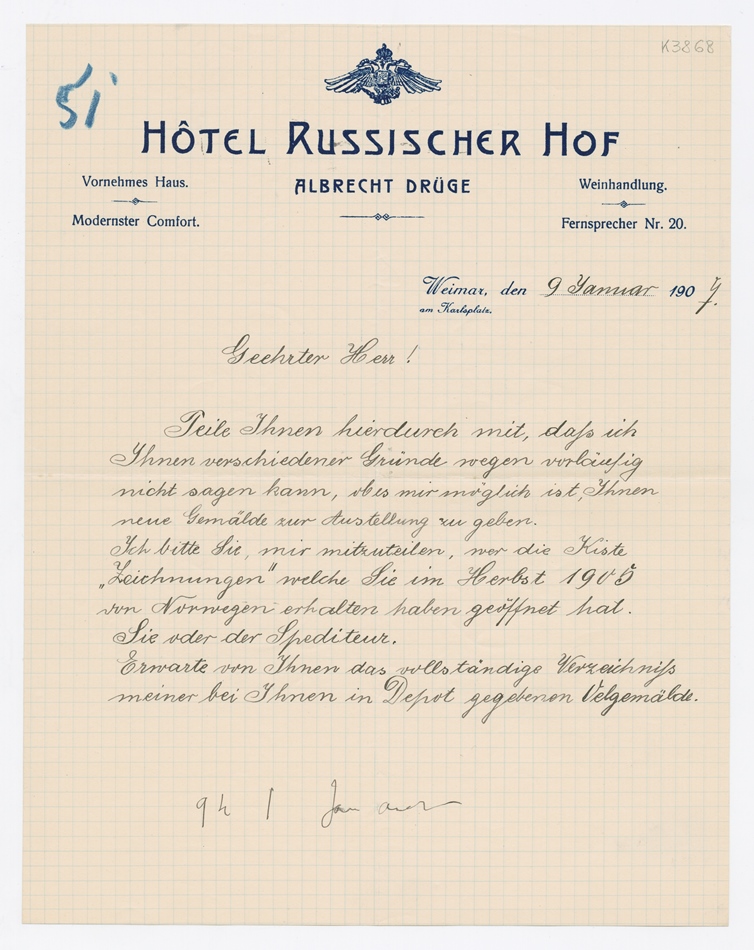 K3868
51
HÔTEL RUSSISCHER HOF
ALBRECHT DRÜGE
Vornehmes Haus.
Modernster Comfort.
Weinhandlung.
Fernsprecher Nr. 20.
Weimar, den 9 Januar 1907.
am Karlsplatz.
Geehrter Herr!
Teile Ihnen hierdurch mit, daß ich
Ihnen verschiedener Gründe wegen vorläufig
nicht sagen kann, ob es mir möglich ist, Ihnen
neue Gemälde zur Austellung zu geben.
Ich bitte Sie, mir mitzuteilen, wer die Kiste
„Zeichnungen" welche Sie im Herbst 1905
von Norwegen erhalten haben geöffnet hat.
Sie oder der Spediteur.
Erwarte von Ihnen das vollständige Verzeichniß
meiner bei Ihnen in Depot gegebenen Oelgemälde.